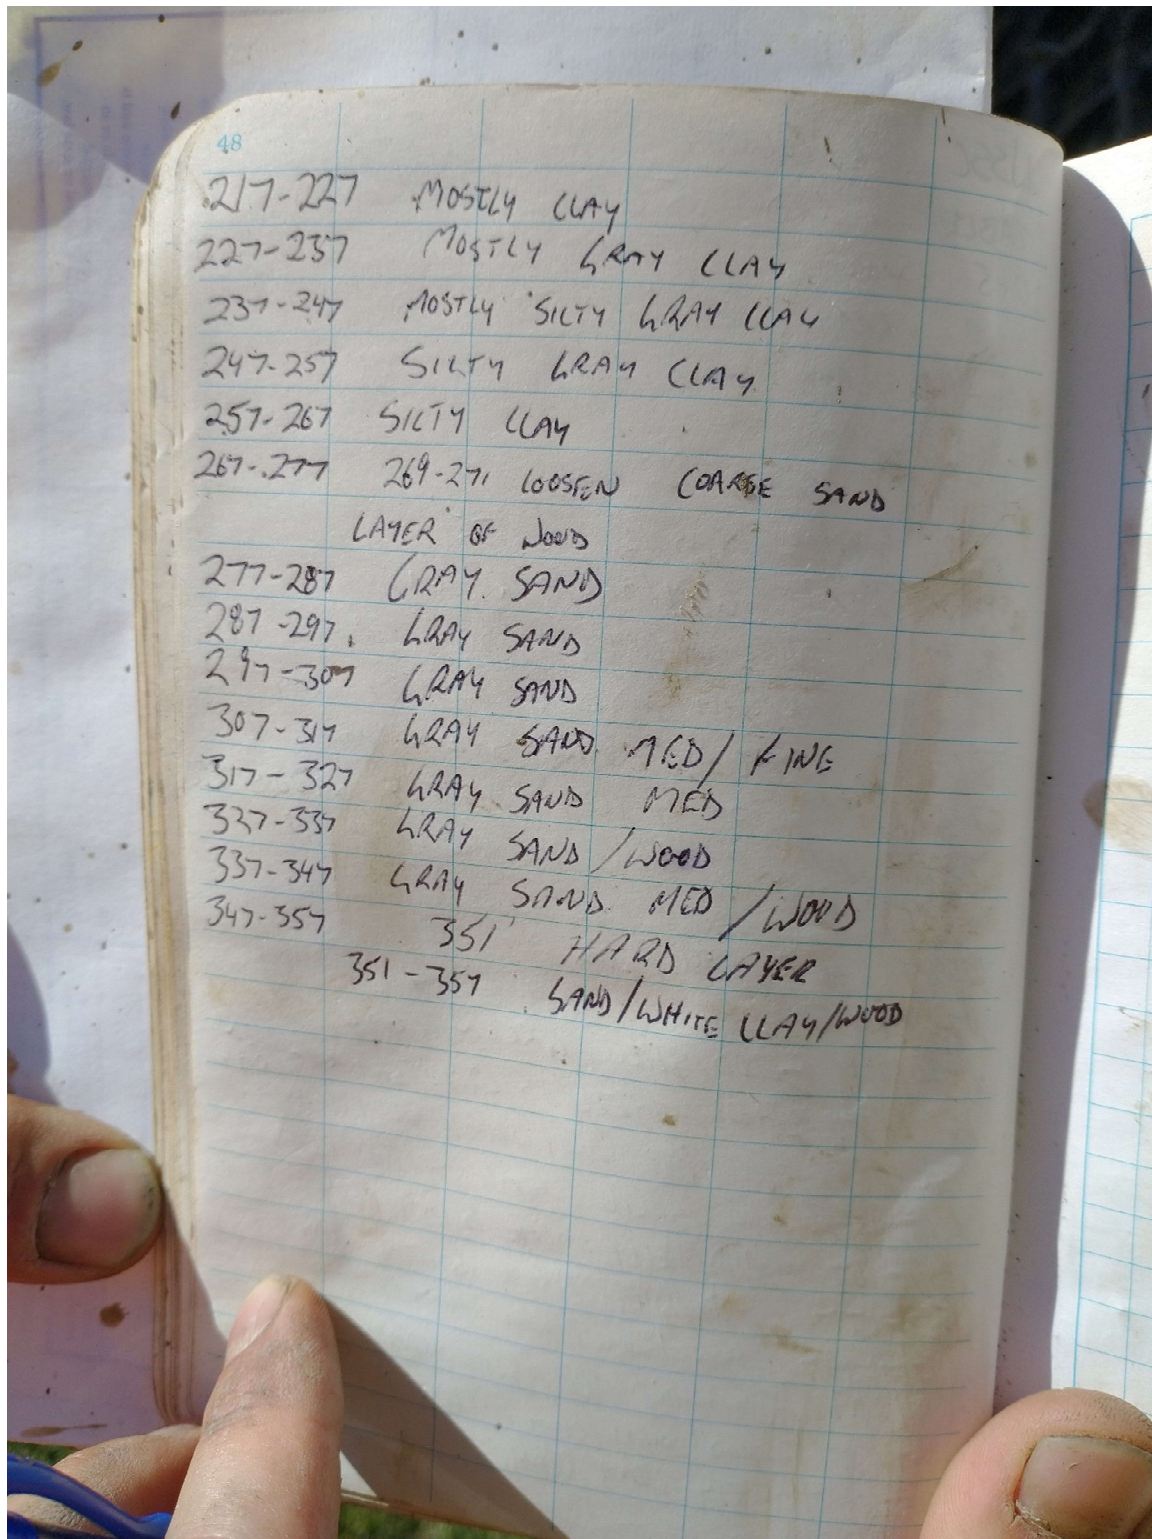 48
217-227 MOSTLY CLAY
227-237 MOSTLY GRAY CLAY
237-247 MOSTLY SILTY GRAY CLAY
247-257 SILTY GRAY CLAY
257-267 SILTY CLAY
267-277 269-271 LOOSEN COARSE SAND
LAYER OF WOOD
277-287 GRAY SAND
287-297 GRAY SAND
297-307 GRAY SAND
307-317 GRAY SAND MED/FINE
317-327 GRAY SAND MED
327-337 GRAY SAND/WOOD
337-347 GRAY SAND MED/WOOD
347-357 351' HARD LAYER
351-357 SAND/WHITE CLAY/WOOD